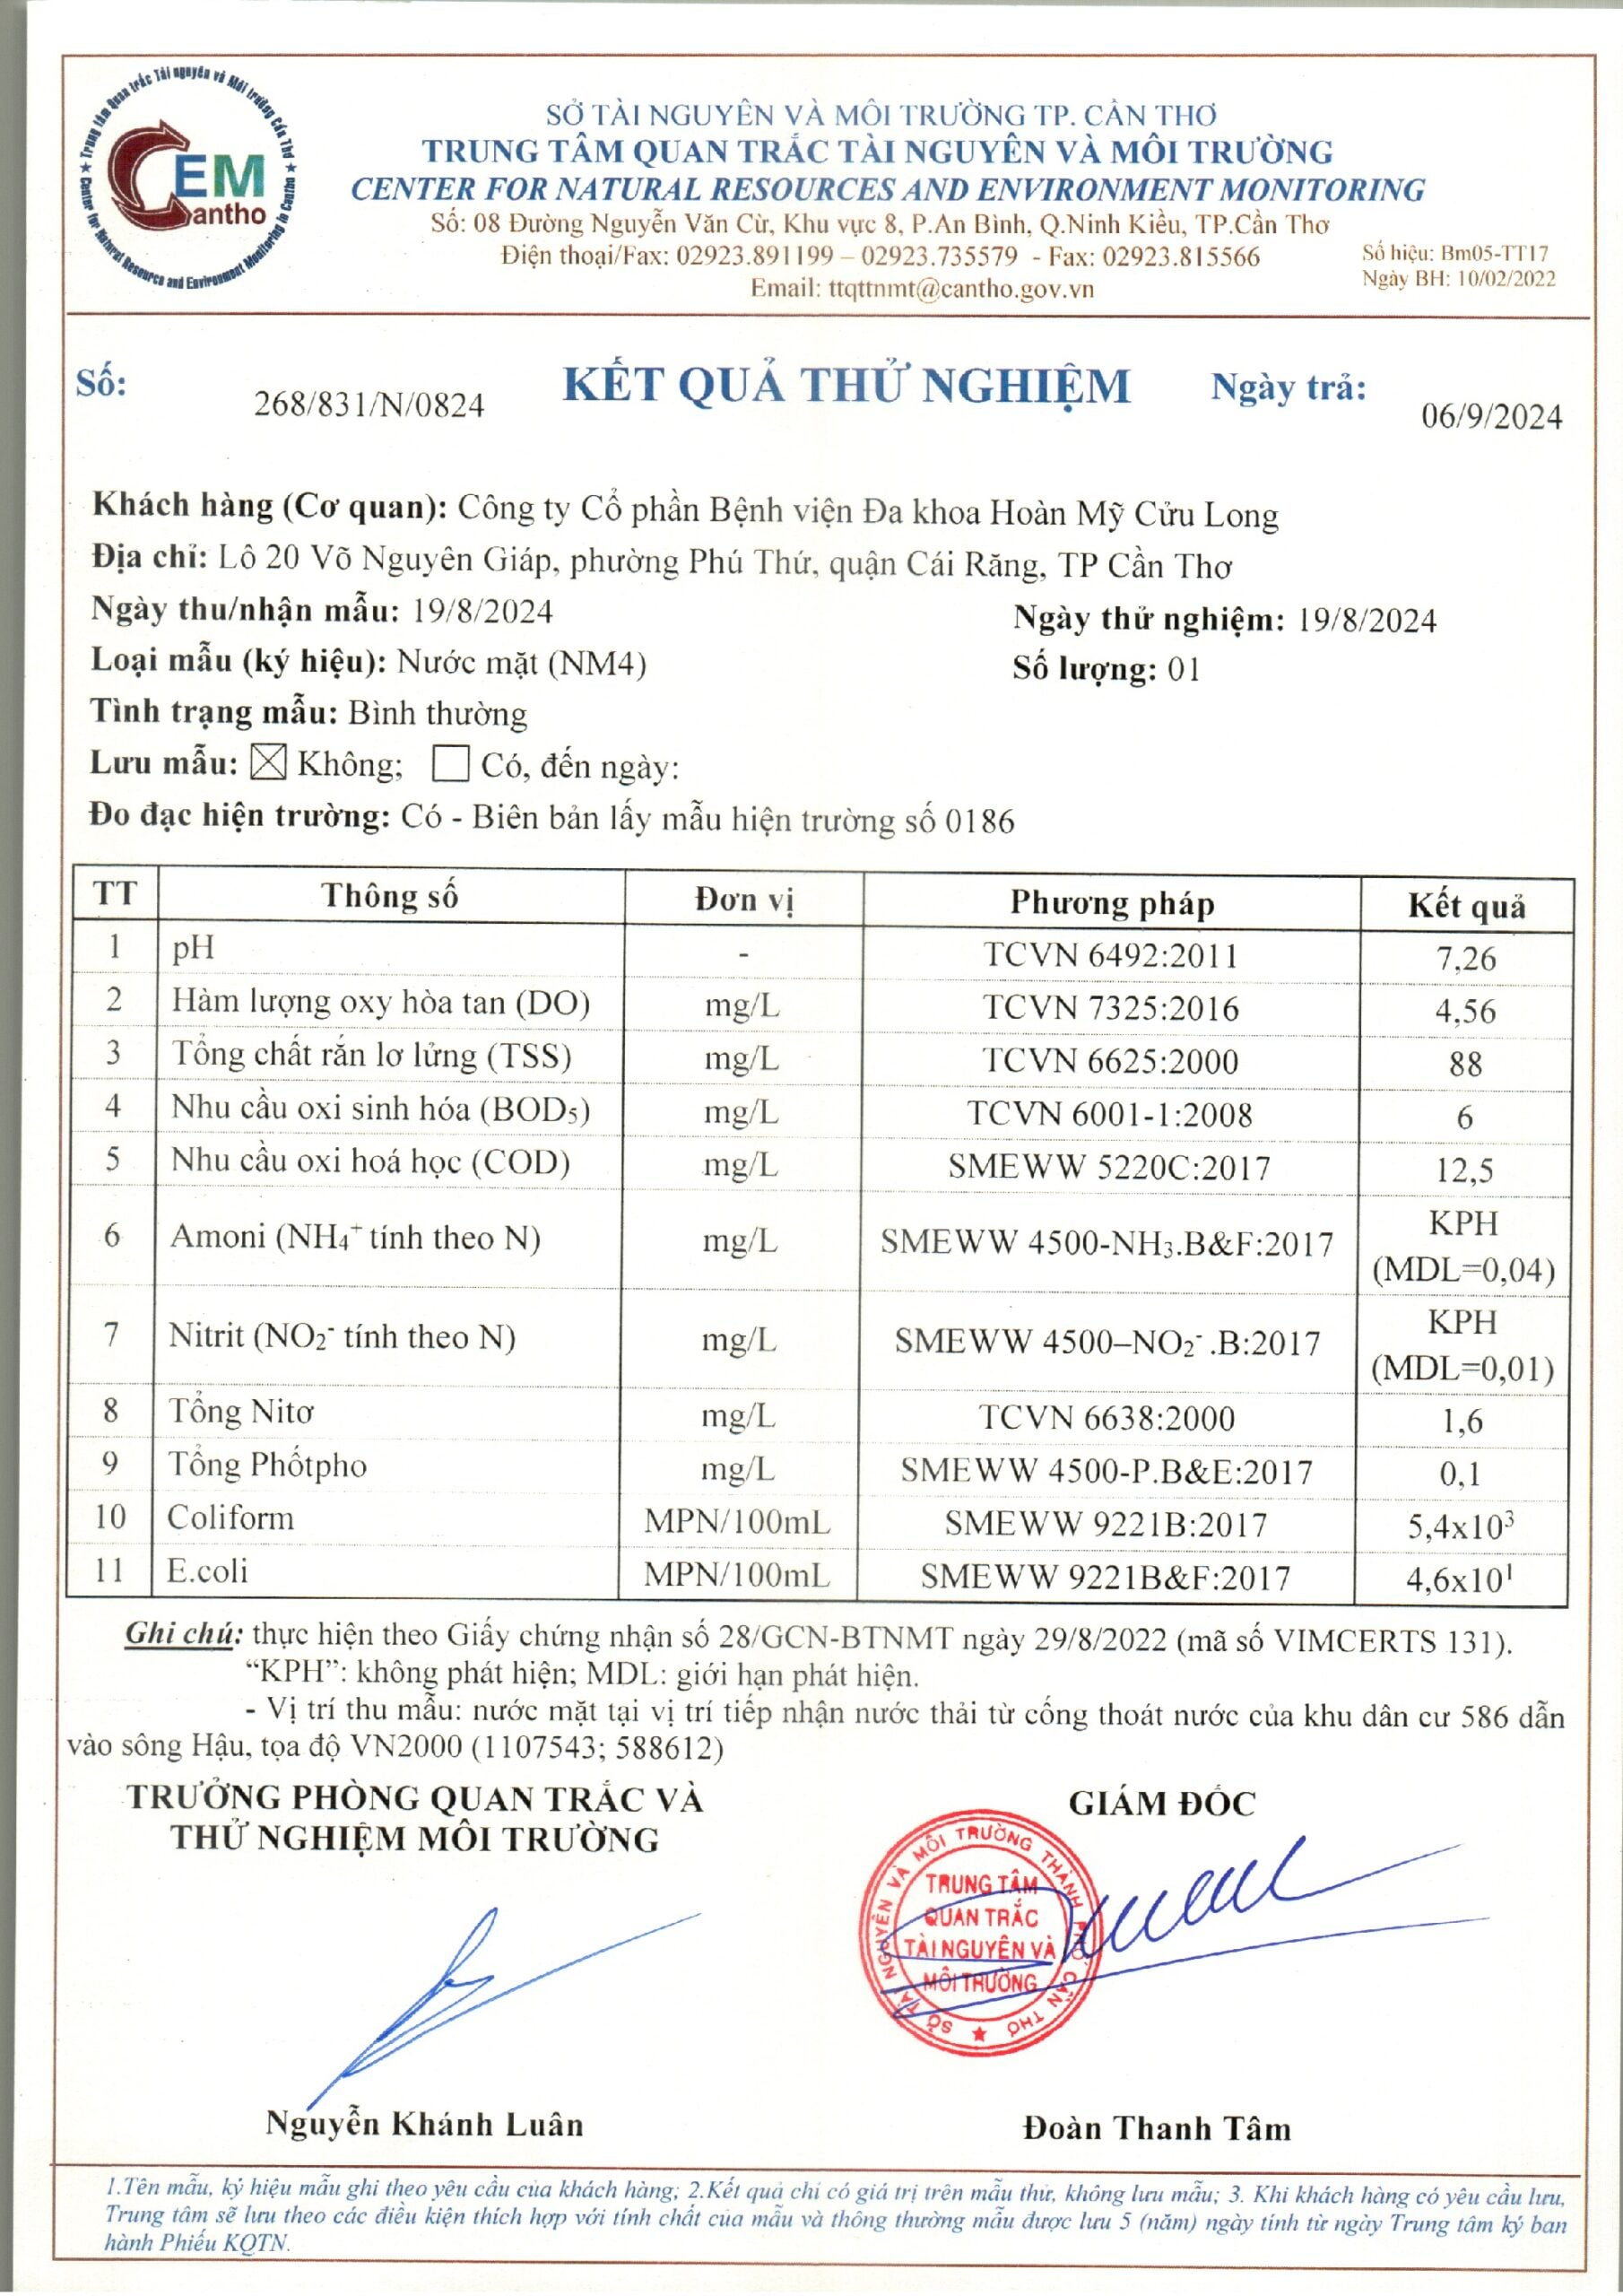 Trung tâm Quan trắc Tài nguyên và Môi trường Cần Thơ
Center for Natural Resource and Environment Monitoring in Cantho
CEM
Cantho
SỞ TÀI NGUYÊN VÀ MÔI TRƯỜNG TP. CẦN THƠ
TRUNG TÂM QUAN TRẮC TÀI NGUYÊN VÀ MÔI TRƯỜNG
CENTER FOR NATURAL RESOURCES AND ENVIRONMENT MONITORING
Số: 08 Đường Nguyễn Văn Cừ, Khu vực 8, P.An Bình, Q.Ninh Kiều, TP.Cần Thơ
Điện thoại/Fax: 02923.891199 – 02923.735579 - Fax: 02923.815566
Email: ttqttnmt@cantho.gov.vn
Số hiệu: Bm05-TT17
Ngày BH: 10/02/2022
Số: 268/831/N/0824 KẾT QUẢ THỬ NGHIỆM Ngày trả: 06/9/2024
Khách hàng (Cơ quan): Công ty Cổ phần Bệnh viện Đa khoa Hoàn Mỹ Cửu Long
Địa chỉ: Lô 20 Võ Nguyên Giáp, phường Phú Thứ, quận Cái Răng, TP Cần Thơ
Ngày thu/nhận mẫu: 19/8/2024 Ngày thử nghiệm: 19/8/2024
Loại mẫu (ký hiệu): Nước mặt (NM4) Số lượng: 01
Tình trạng mẫu: Bình thường
Lưu mẫu: ☒ Không; ☐ Có, đến ngày:
Đo đạc hiện trường: Có - Biên bản lấy mẫu hiện trường số 0186
TT Thông số Đơn vị Phương pháp Kết quả
1 pH - TCVN 6492:2011 7,26
2 Hàm lượng oxy hòa tan (DO) mg/L TCVN 7325:2016 4,56
3 Tổng chất rắn lơ lửng (TSS) mg/L TCVN 6625:2000 88
4 Nhu cầu oxi sinh hóa (BOD₅) mg/L TCVN 6001-1:2008 6
5 Nhu cầu oxi hoá học (COD) mg/L SMEWW 5220C:2017 12,5
6 Amoni (NH₄⁺ tính theo N) mg/L SMEWW 4500-NH₃.B&F:2017 KPH (MDL=0,04)
7 Nitrit (NO₂⁻ tính theo N) mg/L SMEWW 4500–NO₂⁻ .B:2017 KPH (MDL=0,01)
8 Tổng Nitơ mg/L TCVN 6638:2000 1,6
9 Tổng Phốtpho mg/L SMEWW 4500-P.B&E:2017 0,1
10 Coliform MPN/100mL SMEWW 9221B:2017 5,4x10³
11 E.coli MPN/100mL SMEWW 9221B&F:2017 4,6x10¹
Ghi chú: thực hiện theo Giấy chứng nhận số 28/GCN-BTNMT ngày 29/8/2022 (mã số VIMCERTS 131).
“KPH”: không phát hiện; MDL: giới hạn phát hiện.
- Vị trí thu mẫu: nước mặt tại vị trí tiếp nhận nước thải từ cống thoát nước của khu dân cư 586 dẫn
vào sông Hậu, tọa độ VN2000 (1107543; 588612)
TRƯỞNG PHÒNG QUAN TRẮC VÀ
THỬ NGHIỆM MÔI TRƯỜNG
GIÁM ĐỐC
SỞ TÀI NGUYÊN VÀ MÔI TRƯỜNG THÀNH PHỐ CẦN THƠ
TRUNG TÂM
QUAN TRẮC
TÀI NGUYÊN VÀ
MÔI TRƯỜNG
Nguyễn Khánh Luân Đoàn Thanh Tâm
1.Tên mẫu, ký hiệu mẫu ghi theo yêu cầu của khách hàng; 2.Kết quả chỉ có giá trị trên mẫu thử, không lưu mẫu; 3. Khi khách hàng có yêu cầu lưu,
Trung tâm sẽ lưu theo các điều kiện thích hợp với tính chất của mẫu và thông thường mẫu được lưu 5 (năm) ngày tính từ ngày Trung tâm ký ban
hành Phiếu KQTN.